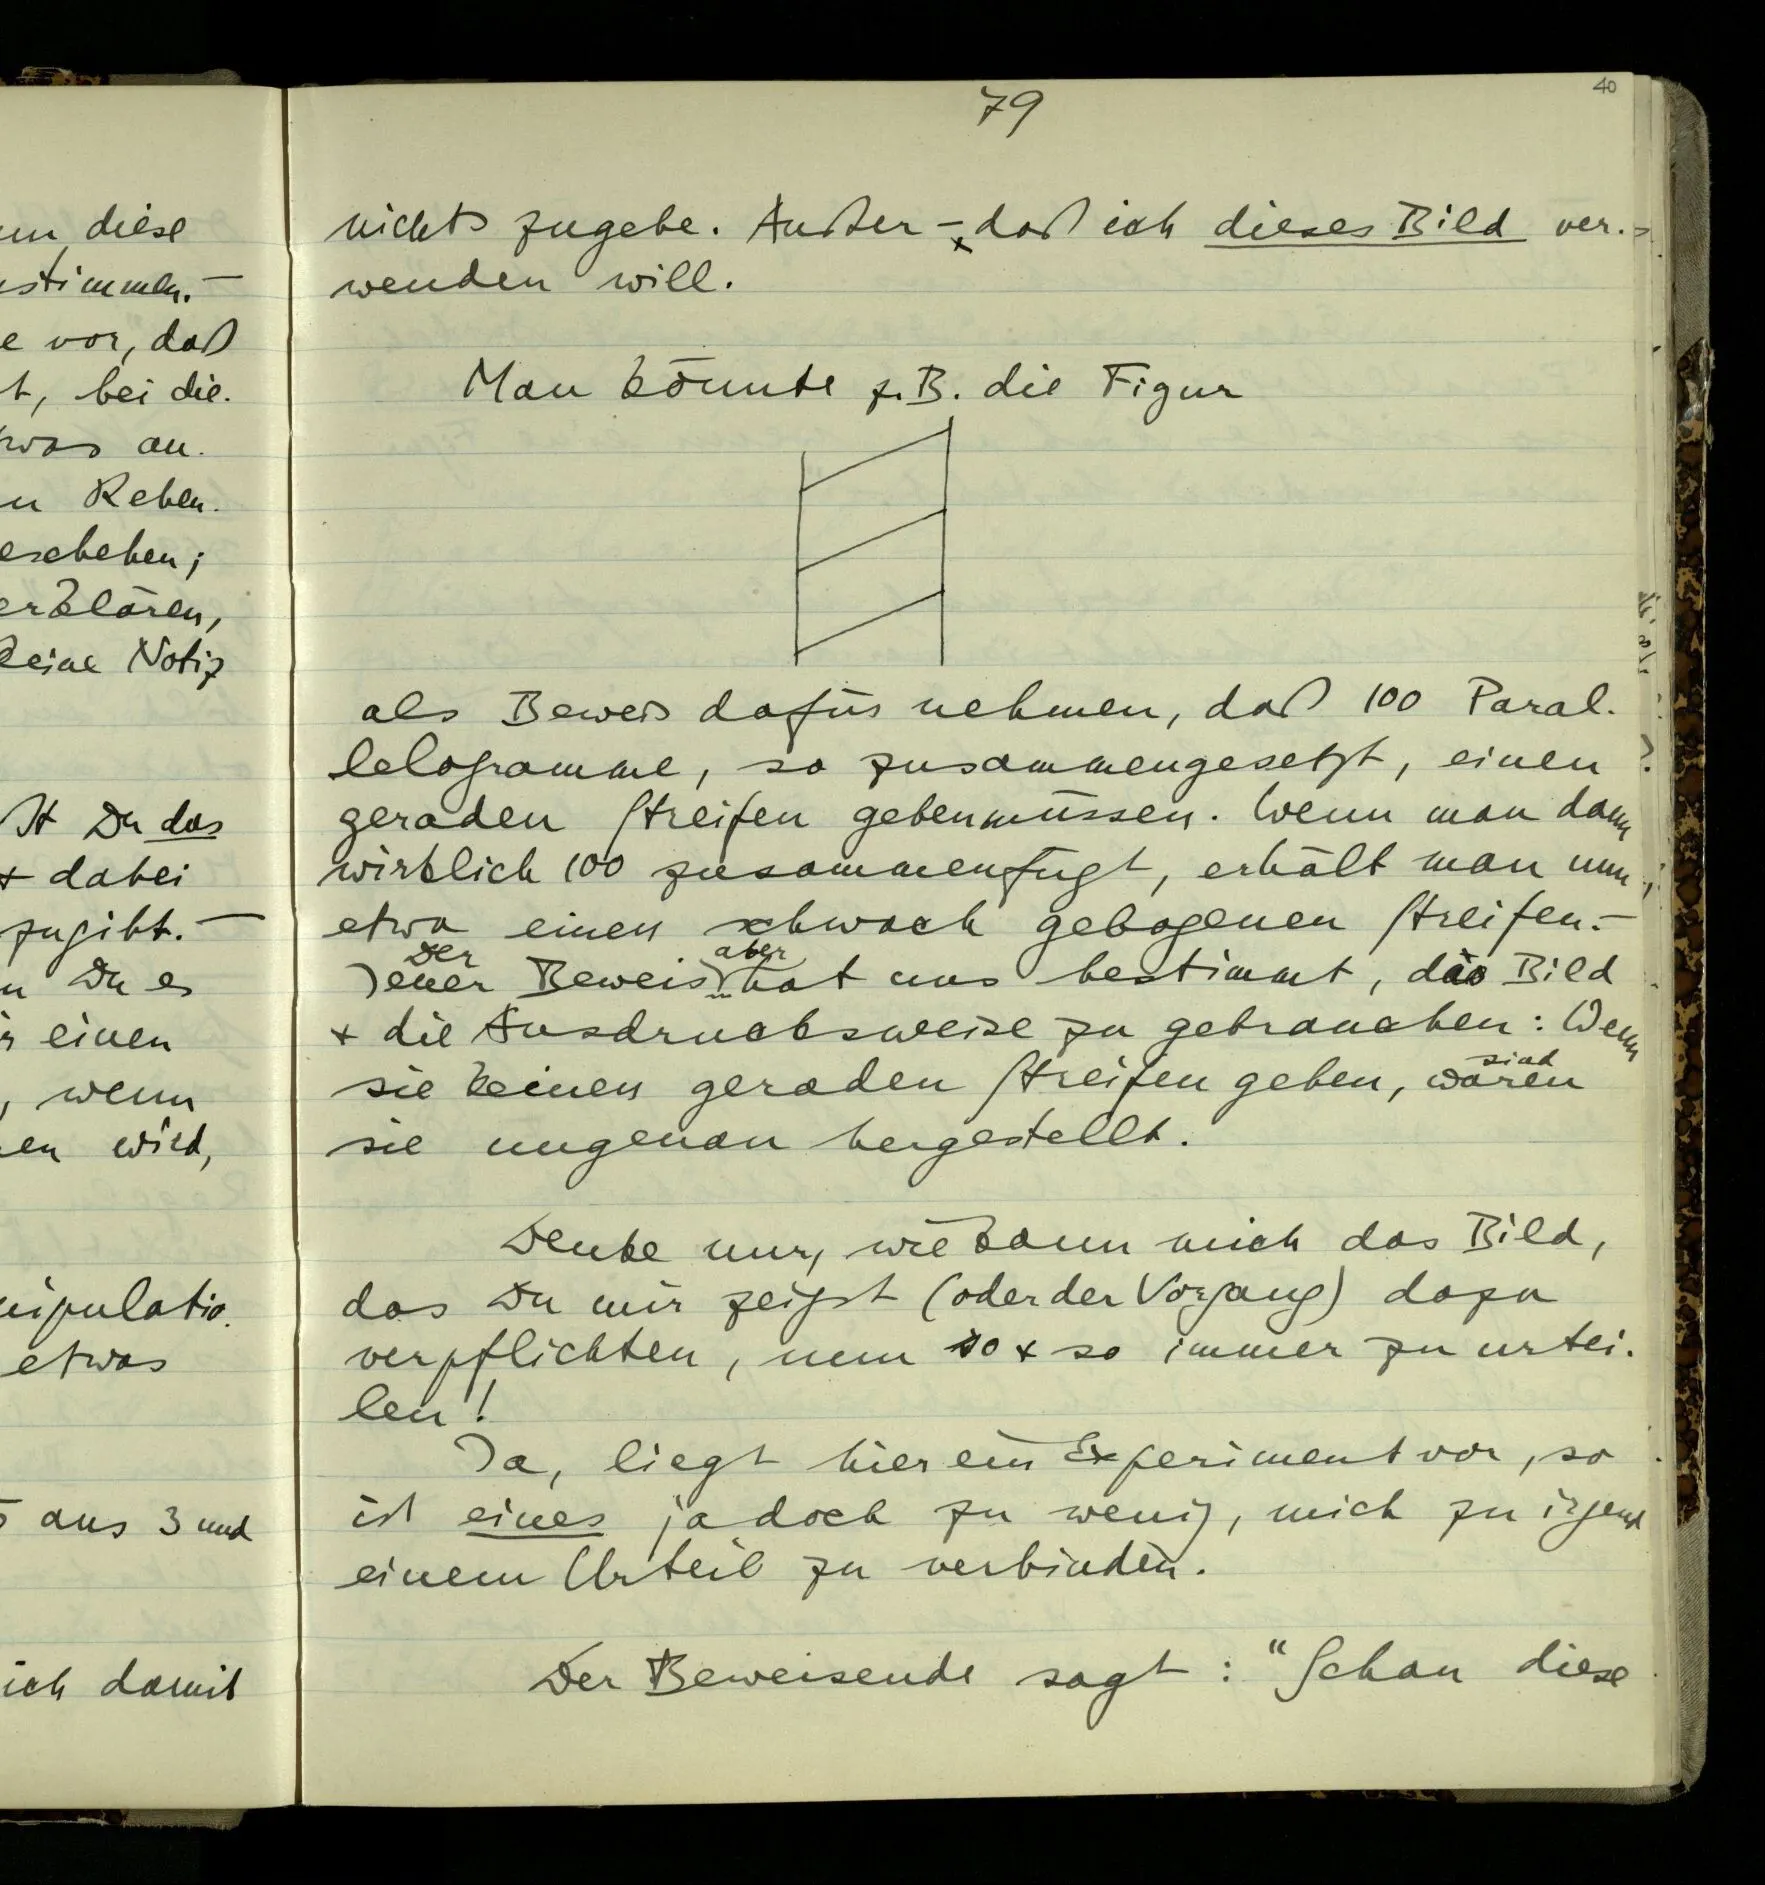 um diese
stimmen. –
e vor, daß
t, bei die-
was an.
n Reben.
eschehen;
erklären,
keine Notiz
ßt Du das
+ dabei
zugibt. –
n Du es
r einen
, wenn
en wird,
nipulatio-
etwas
aus 3 und
ich damit
79
40
nichts zugebe. Außer – daß ich dieses Bild ver-
wenden will.
Man könnte z.B. die Figur
als Beweis dafür nehmen, daß 100 Paral-
lelogramme, so zusammengesetzt, einen
geraden Streifen geben müssen. Wenn man dann
wirklich 100 zusammenfügt, erhält man nun
etwa einen schwach gebogenen Streifen. –
Der aber
Jener Beweis hat uns bestimmt, das Bild
+ die Ausdrucksweise zu gebrauchen: Wenn
sind
sie keinen geraden Streifen geben, waren
sie ungenau hergestellt.
Denke nur, wie kann mich das Bild,
das Du mir zeigst (oder der Vorgang) dazu
verpflichten, nun so + so immer zu urtei-
len!
Ja, liegt hier ein Experiment vor, so
ist eines ja doch zu wenig, mich zu irgend
einem Urteil zu verbinden.
Der Beweisende sagt: "Schau diese